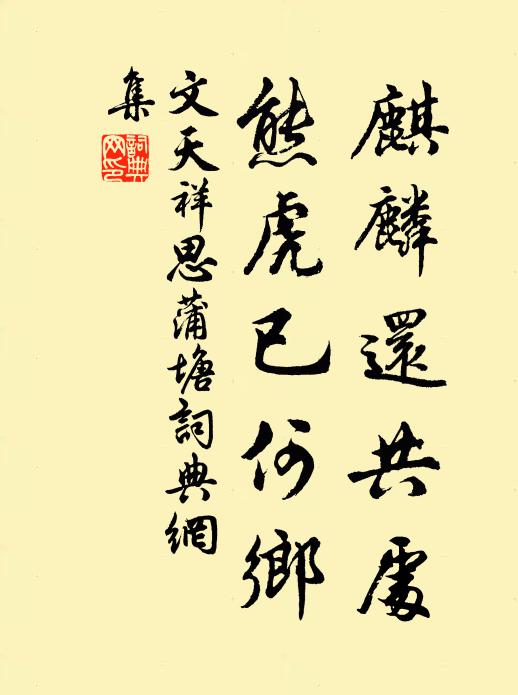 麒麟還共處
熊虎已何鄉
文天祥思蒲塘詞典網
集
詞典網印